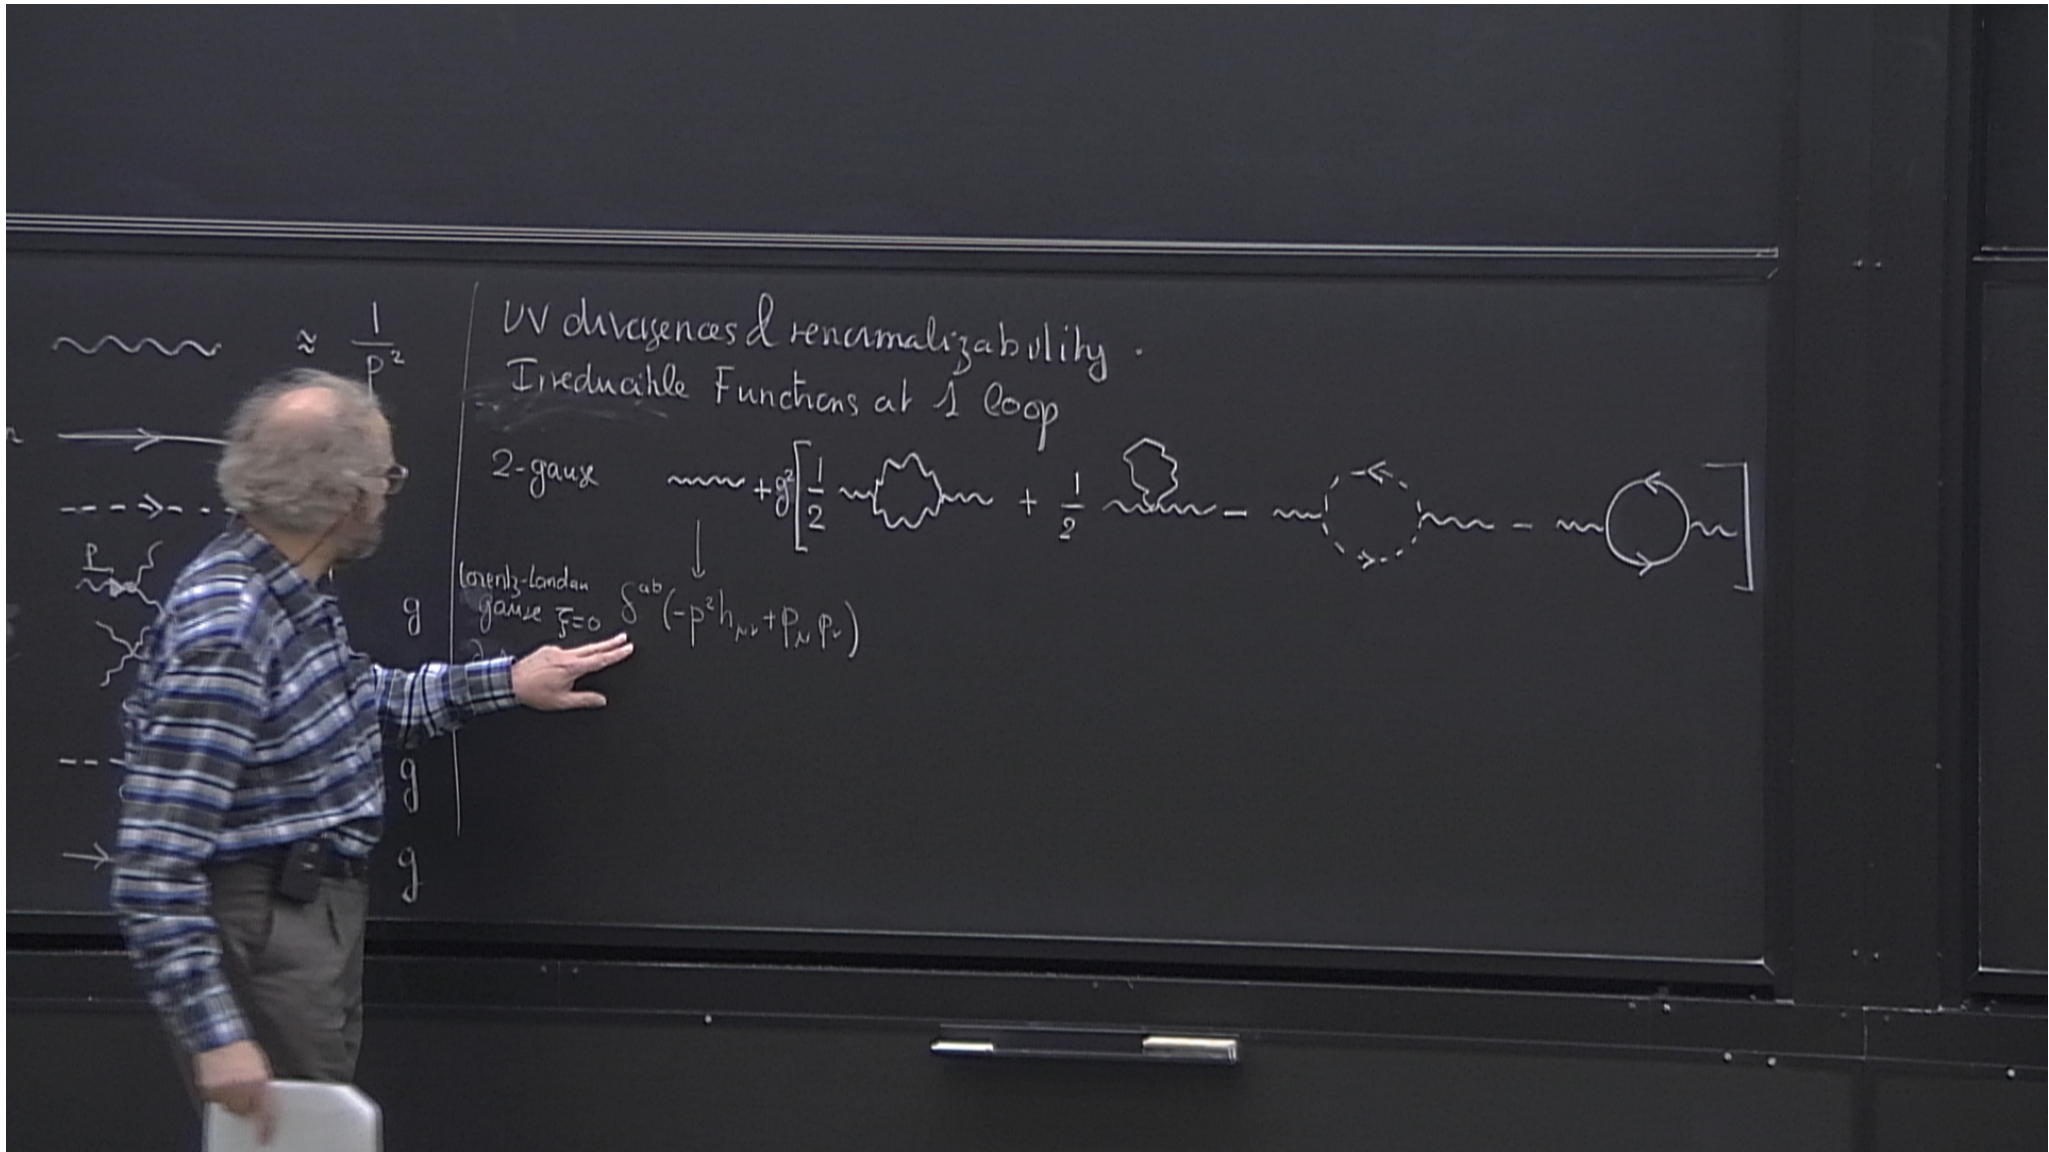 ≈ 1/p²
p
g
g
g
UV divergences & renormalizability.
Irreducible Functions at 1 loop
2-gauge + g² [ 1/2 + 1/2 - - ]
Lorentz-Landau
gauge ξ=0 δ^{ab} (-p² h_{μν} + p_μ p_ν)